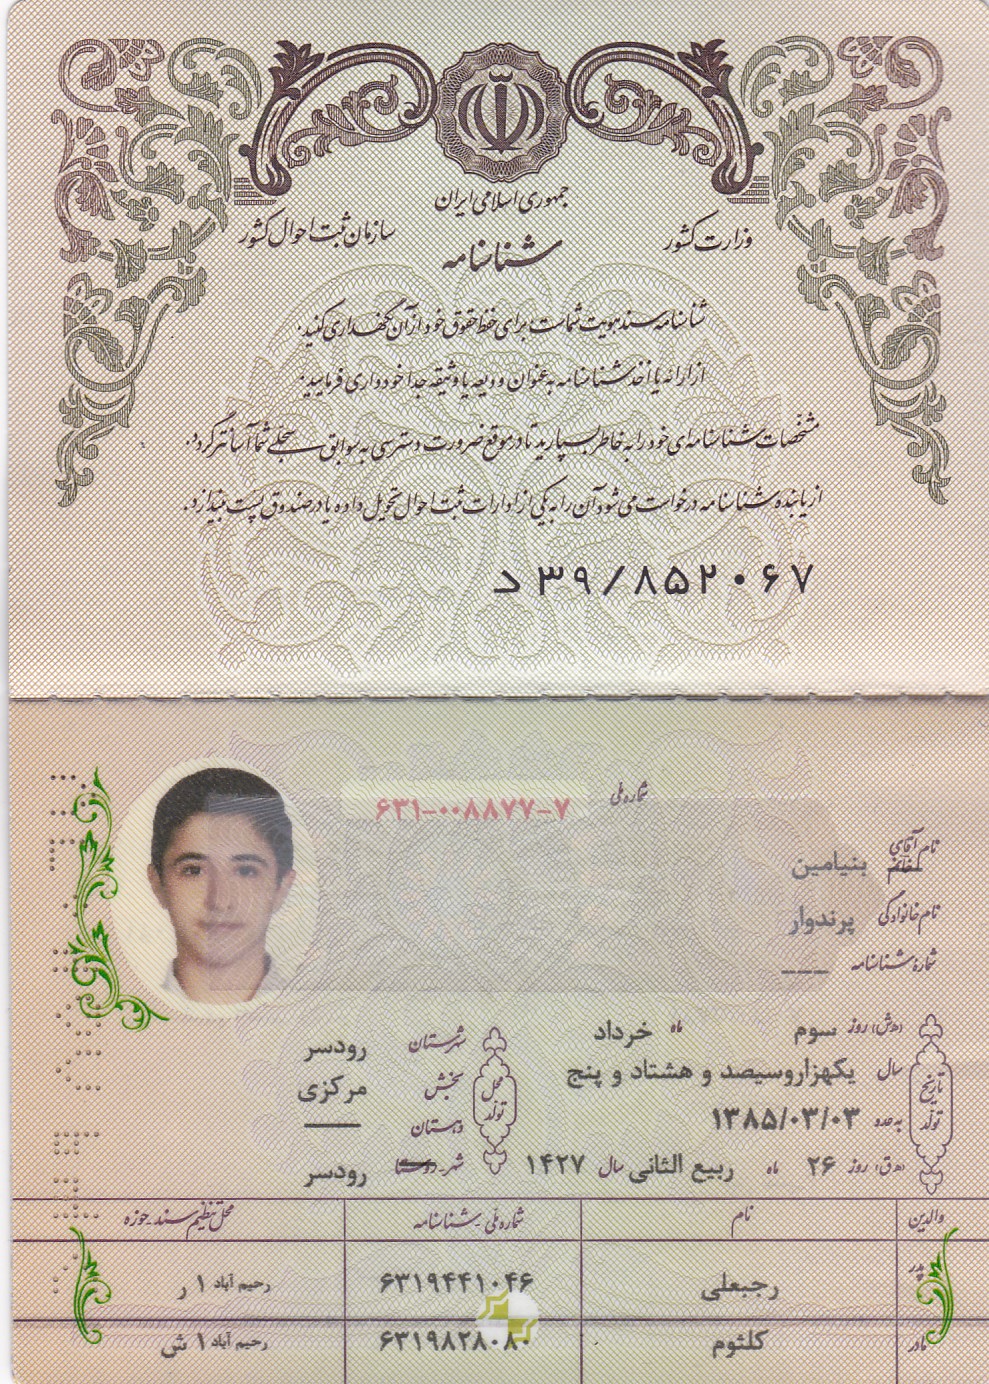 جمهوری اسلامی ایران
وزارت کشور
سازمان ثبت احوال کشور
شناسنامه
شناسنامه سند هویت شماست برای حفظ حقوق خود از آن نگهداری کنید.
از ارائه یا اخذ شناسنامه به عنوان ودیعه یا وثیقه جداً خودداری فرمایید.
مشخصات شناسنامه‌ای خود را به خاطر بسپارید تا در موقع ضرورت دسترسی به سوابق سجلی شما آسانتر گردد.
از یابنده شناسنامه درخواست می‌شود آن را به یکی از ادارات ثبت احوال تحویل داده یا در صندوق پست بیندازد.
د ۳۹/۸۵۲۰۶۷
شماره ملی ۶۳۱-۰۰۸۸۷۷-۷
نام آقای خانم بنیامین
نام خانوادگی پرندوار
شماره شناسنامه ---
تاریخ تولد
(ه‍.ش) روز سوم ماه خرداد
سال یکهزاروسیصد و هشتاد و پنج
به عدد ۱۳۸۵/۰۳/۰۳
(ه‍.ق) روز ۲۶ ماه ربیع الثانی سال ۱۴۲۷
محل تولد
شهرستان رودسر
بخش مرکزی
دهستان ---
شهر-روستا رودسر
والدین نام شماره ملی-شناسنامه محل تنظیم سند-حوزه
پدر رجبعلی ۶۳۱۹۴۴۱۰۴۶ رحیم آباد ۱ ر
مادر کلثوم ۶۳۱۹۸۲۸۰۸۰ رحیم آباد ۱ ش